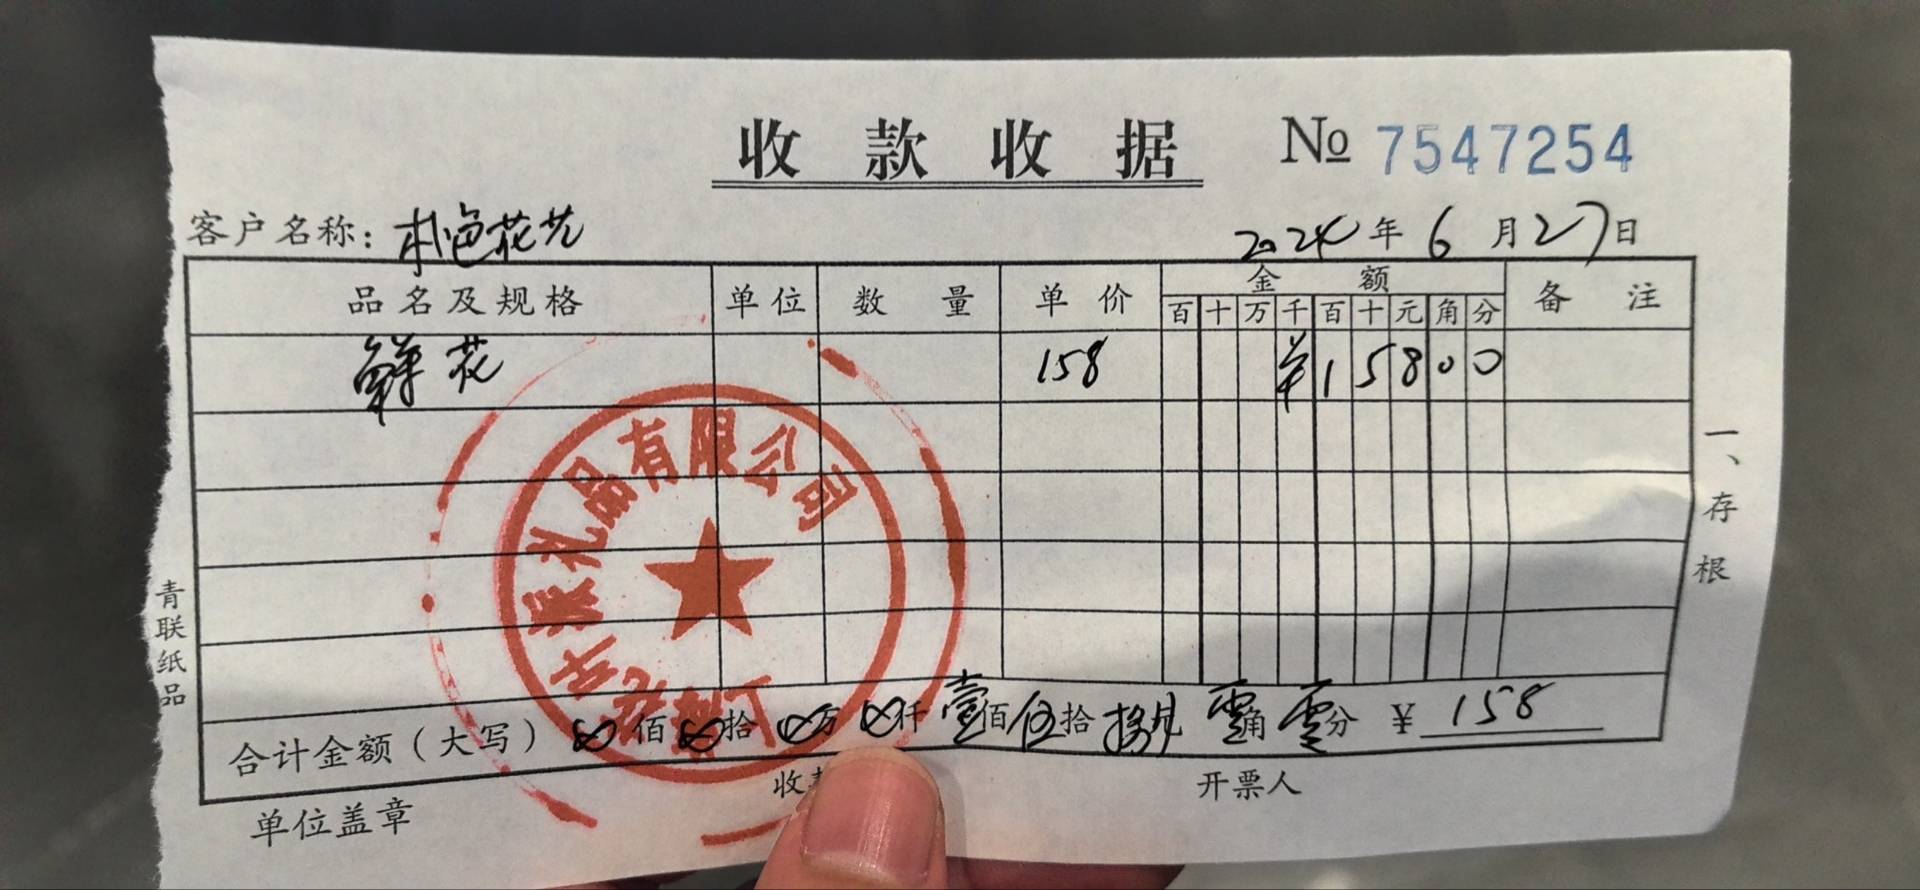 收款收据 № 7547254
客户名称：朴色花艺 2024年6月27日
品名及规格 单位 数量 单价 金额 备注
百 十 万 千 百 十 元 角 分
鲜花 158 ¥ 1 5 8 0 0
合计金额（大写） 佰 拾 万 仟 壹佰 伍拾 捌元 零角 零分 ¥ 158
单位盖章 收 开票人
一、存根
青联纸品
礼品有限公司